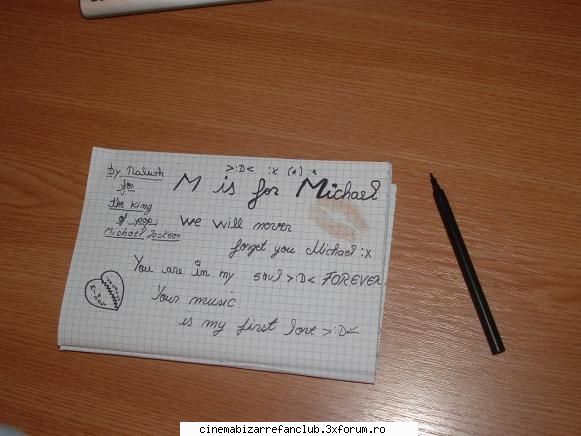 By Raluth
for
the King
of pop
Michael Jackson
>:D< :X (*) :*
M is for Michael
We will never
forget you Michael :X
You are in my soul >:D< FOREVER
Your music
is my first love >:D<
cinemabizarrefanclub.3xforum.ro